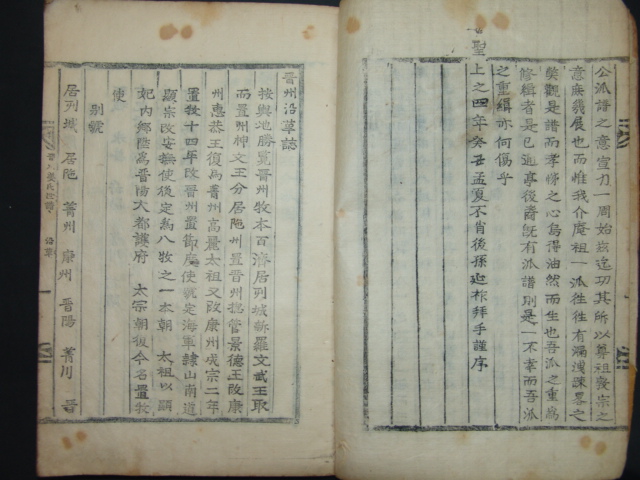 公派譜之意宣力一周始克迄功其所以尊祖敬宗之
意庶幾展也而惟我介庵祖一派徃徃有漏洩誅畧之
獘觀是譜而孝悌之心烏得油然而生也吾派之重爲
修輯者是已逈亭後裔旣有派譜則是一不幸而吾派
之重輯亦何傷乎
聖上之四年癸丑孟夏不肖後孫 拜手謹序
晋州沿革誌
按輿地勝覽晋州牧本百濟居列城新羅文武王取
而置州神文王分居陁州置晋州摠管景德王改康
州惠恭王復爲菁州高麗太祖又改康州成宗二年
置牧十四年改晋州置節度使號定海軍隷山南道
顯宗改安撫使後定爲八牧之一本朝 太祖以顯
妃內鄕陞爲晋陽大都護府 太宗朝復今名置牧
使
別號
居列城 居陁 菁州 康州 晋陽 菁川 晋
晋州姜氏世譜
沿革